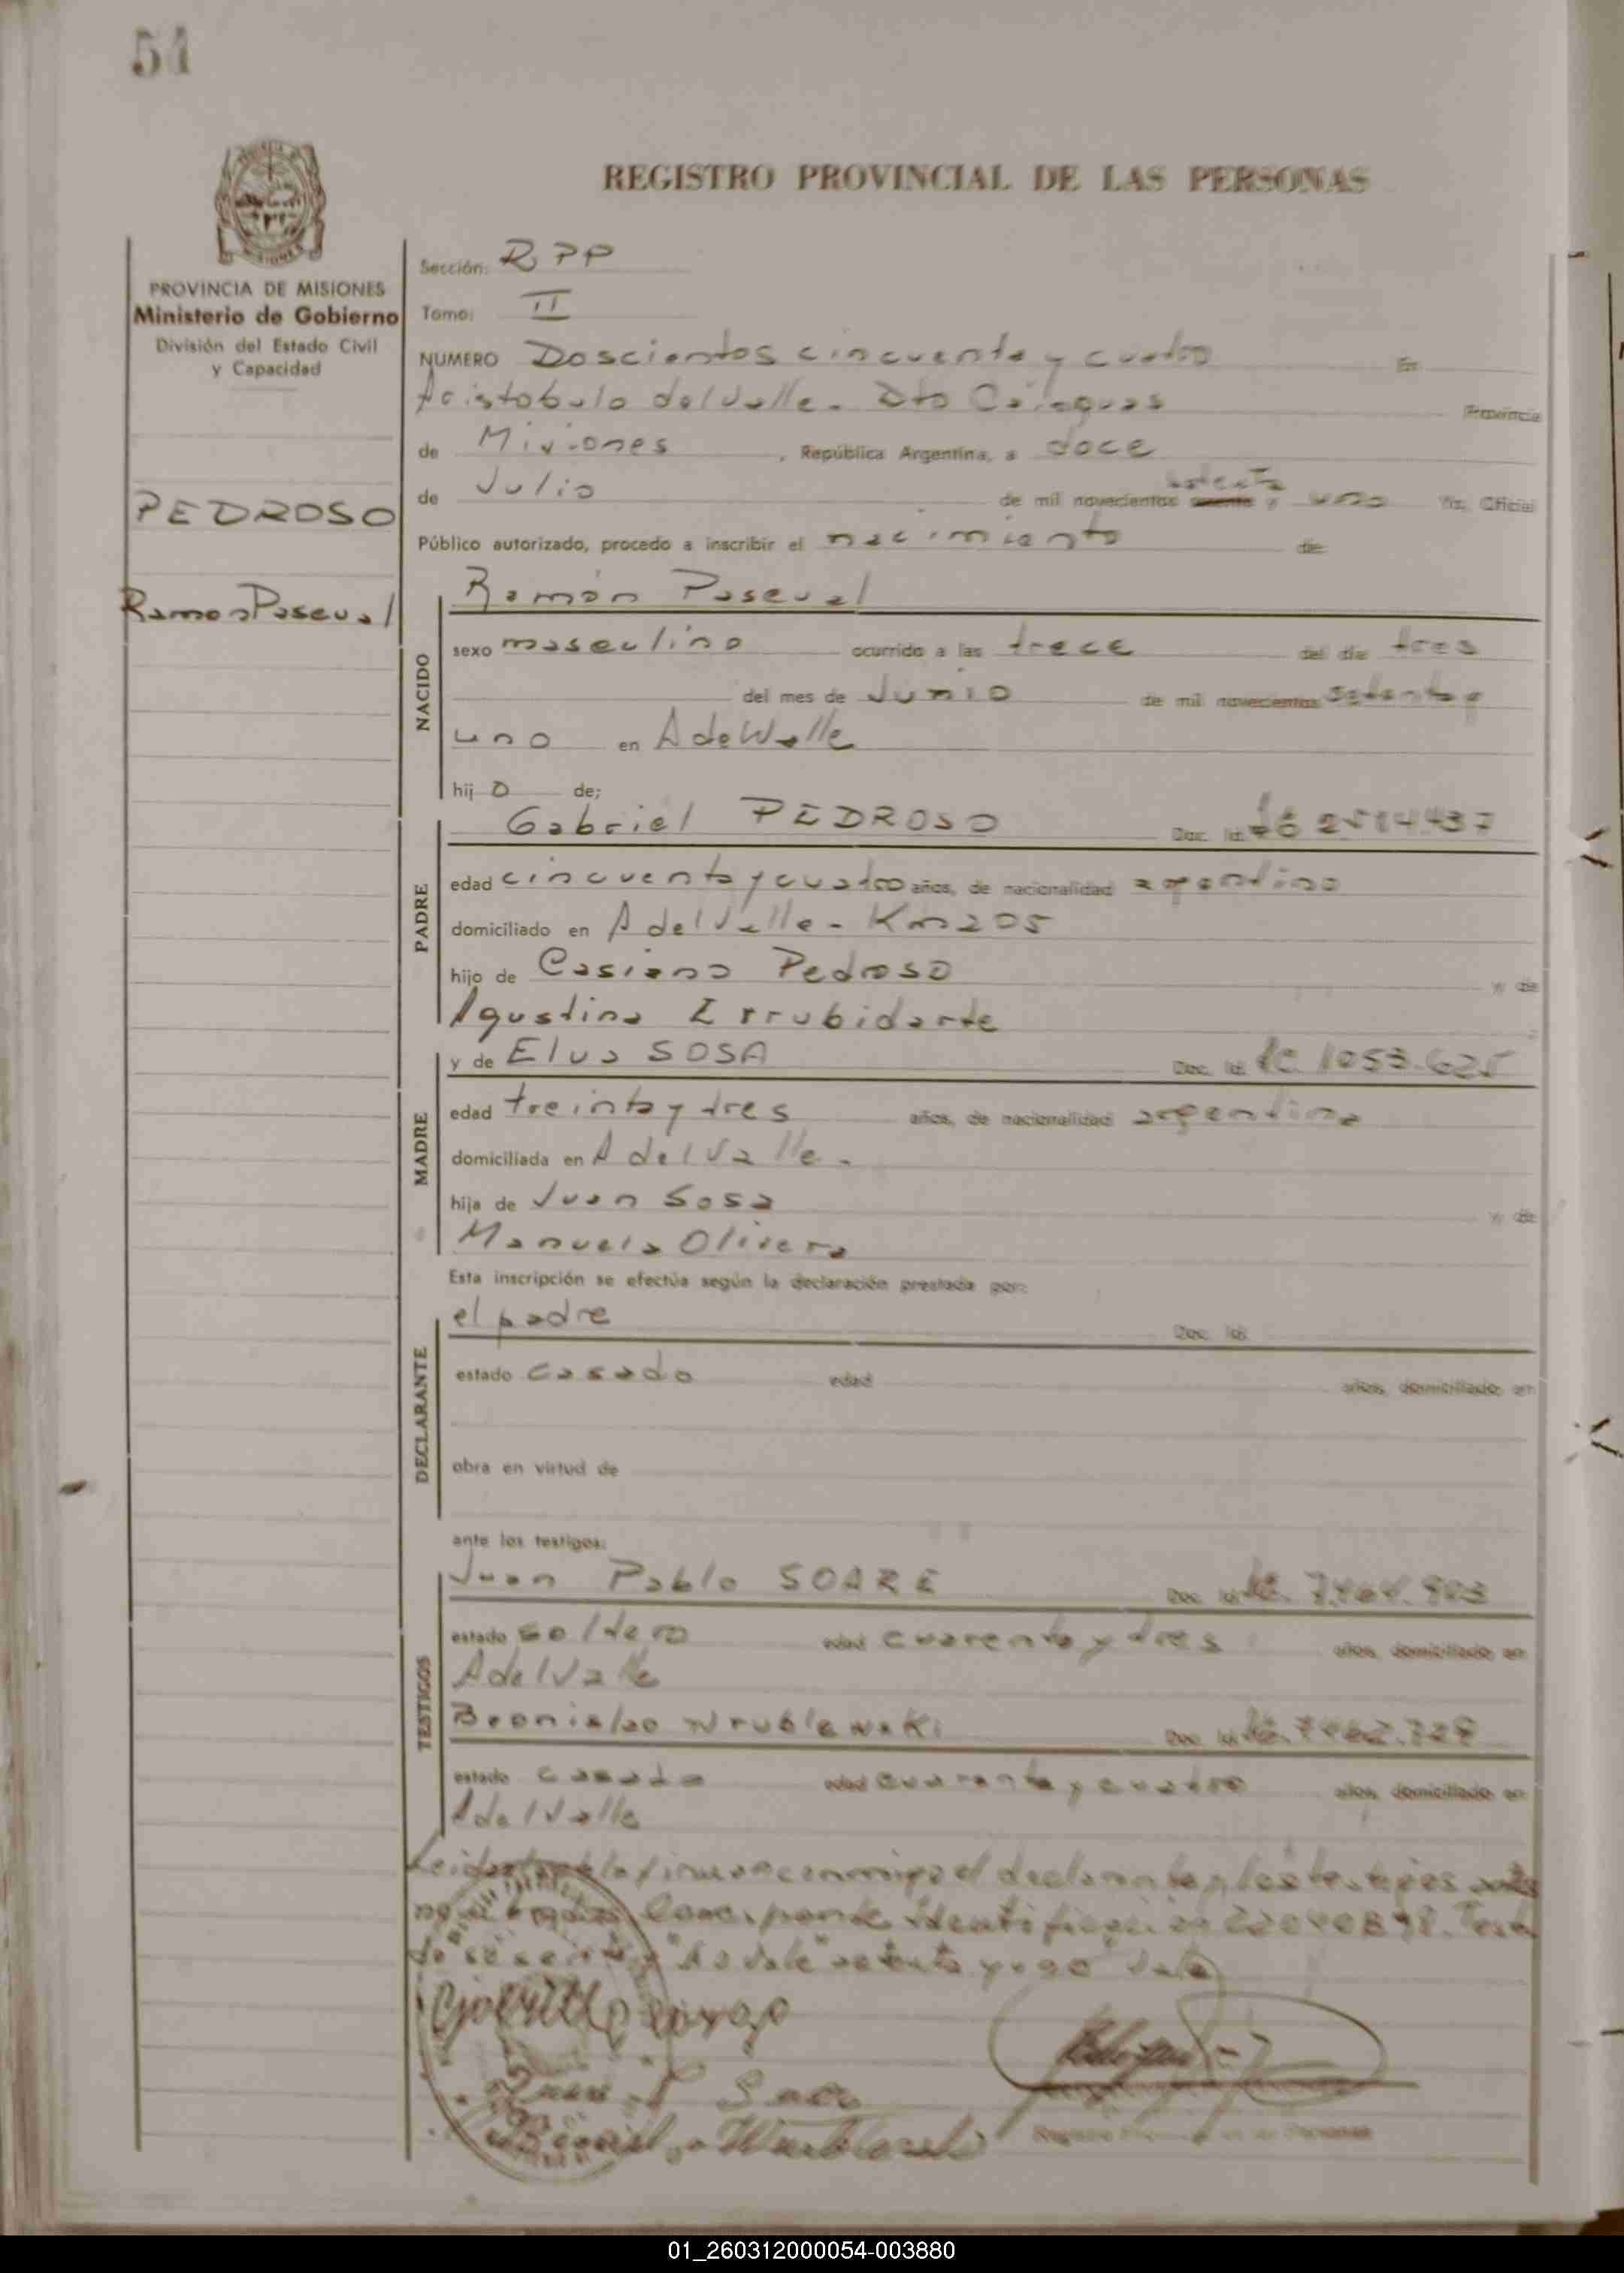 51
REGISTRO PROVINCIAL DE LAS PERSONAS
PROVINCIA DE MISIONES
Ministerio de Gobierno
División del Estado Civil
y Capacidad
PEDROSO
Ramon Pascual
Sección: RPP
Tomo: II
NUMERO Doscientos cincuenta y cuatro En
Aristobulo del Valle - Dto Cainguas Provincia
de Misiones, República Argentina, a doce
de Julio de mil novecientos setenta y uno Yo, Oficial
Público autorizado, procedo a inscribir el nacimiento de
NACIDO
Ramón Pascual
sexo masculino ocurrido a las trece del día tres
del mes de Junio de mil novecientos setenta y
uno en A del Valle
hijo de:
PADRE
Gabriel PEDROSO Doc. Id. 2514437
edad cincuenta y cuatro años, de nacionalidad argentina
domiciliado en A del Valle - Km 205
hijo de Casiano Pedroso y de
Agustina Irrubidarte
MADRE
y de Elva SOSA Doc. Id. LC 1053.625
edad treinta y tres años, de nacionalidad argentina
domiciliada en A del Valle -
hija de Juan Sosa y de
Manuela Olivera
Esta inscripción se efectúa según la declaración prestada por:
DECLARANTE
el padre Doc. Id.
estado casado edad años, domiciliado en
obra en virtud de
ante los testigos:
TESTIGOS
Juan Pablo SOARE Doc. Id.
estado soltero edad cuarenta y tres años, domiciliado en
A del Valle
Bronislao Wrublewski Doc. Id.
estado casado edad cuarenta y cuatro años, domiciliado en
A del Valle
Leida el declarante y los testigos
Corresponde identificación
"No vale" setenta y uno Vale
01_260312000054-003880